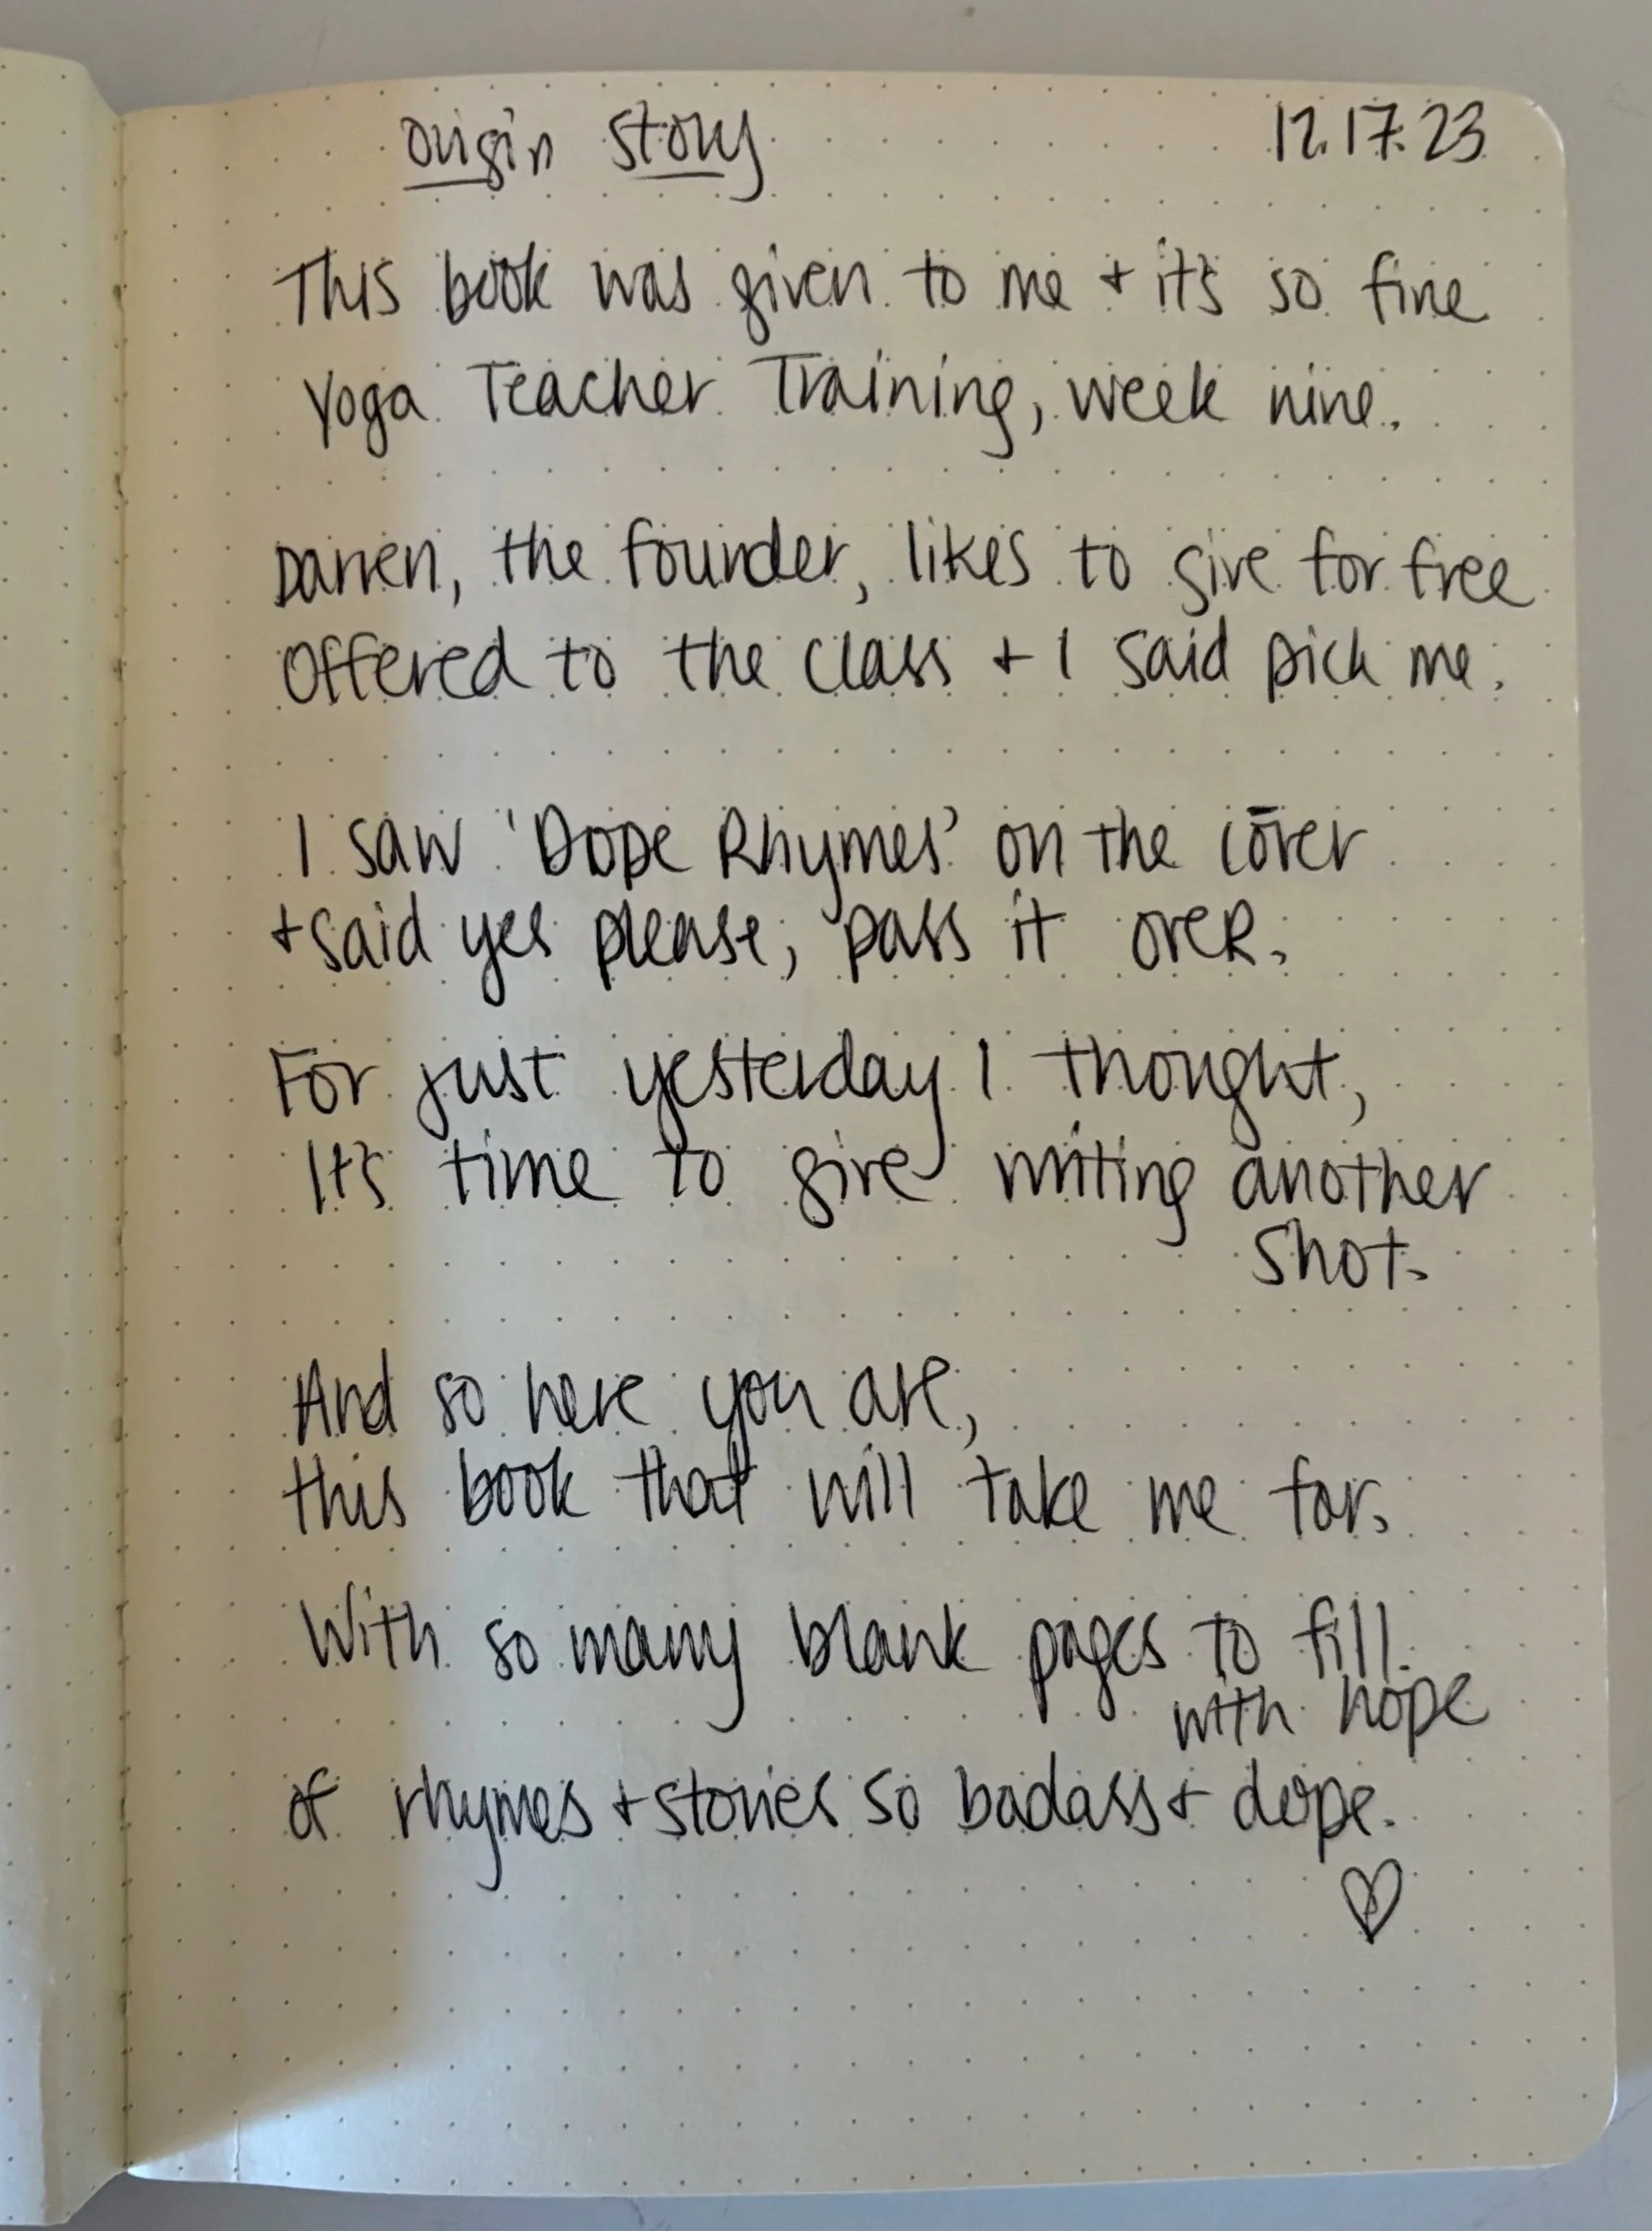 Origin Story 12.17.23
This book was given to me + it's so fine
Yoga Teacher Training, week nine.
Darren, the founder, likes to give for free
Offered to the class + I said pick me.
I saw 'Dope Rhymes' on the cōver
+ said yes please, pass it over.
For just yesterday I thought,
It's time to give writing another
shot.
And so here you are,
this book that will take me far.
With so many blank pages to fill
with hope
of rhymes + stories so badass + dope.
♡